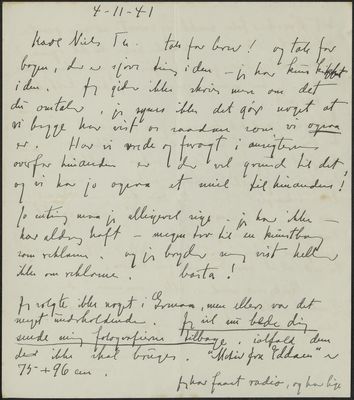 4-11-41
Kære Niels Th. tak for brev! og tak for
bogen, der er sjove ting i den – jeg har kun kigget
i den. Jeg gider ikke skrive mere om det
du omtaler, jeg synes ikke det gør noget at
vi begge har vist os saadan som vi ogsaa
er. Har vi vrede og foragt i ansigterne
overfor hinanden er der vel grund til det,
og vi har jo ogsaa et smil til hinanden!
Jo en ting maa jeg alligevel sige. jeg har ikke –
har aldrig haft – megen tro til en kunstbog
som reklame. og jeg bryder mig vist heller
ikke om reklame. basta!
Jeg solgte ikke noget i , men ellers var det
meget underholdende. Jeg vil nu bede dig
sende mig fotografierne tilbage, ialfald dem
der ikke skal bruges. "Motiv fra Eddaen" er
75 + 96 cm.
jeg har faaet radio, og har lige